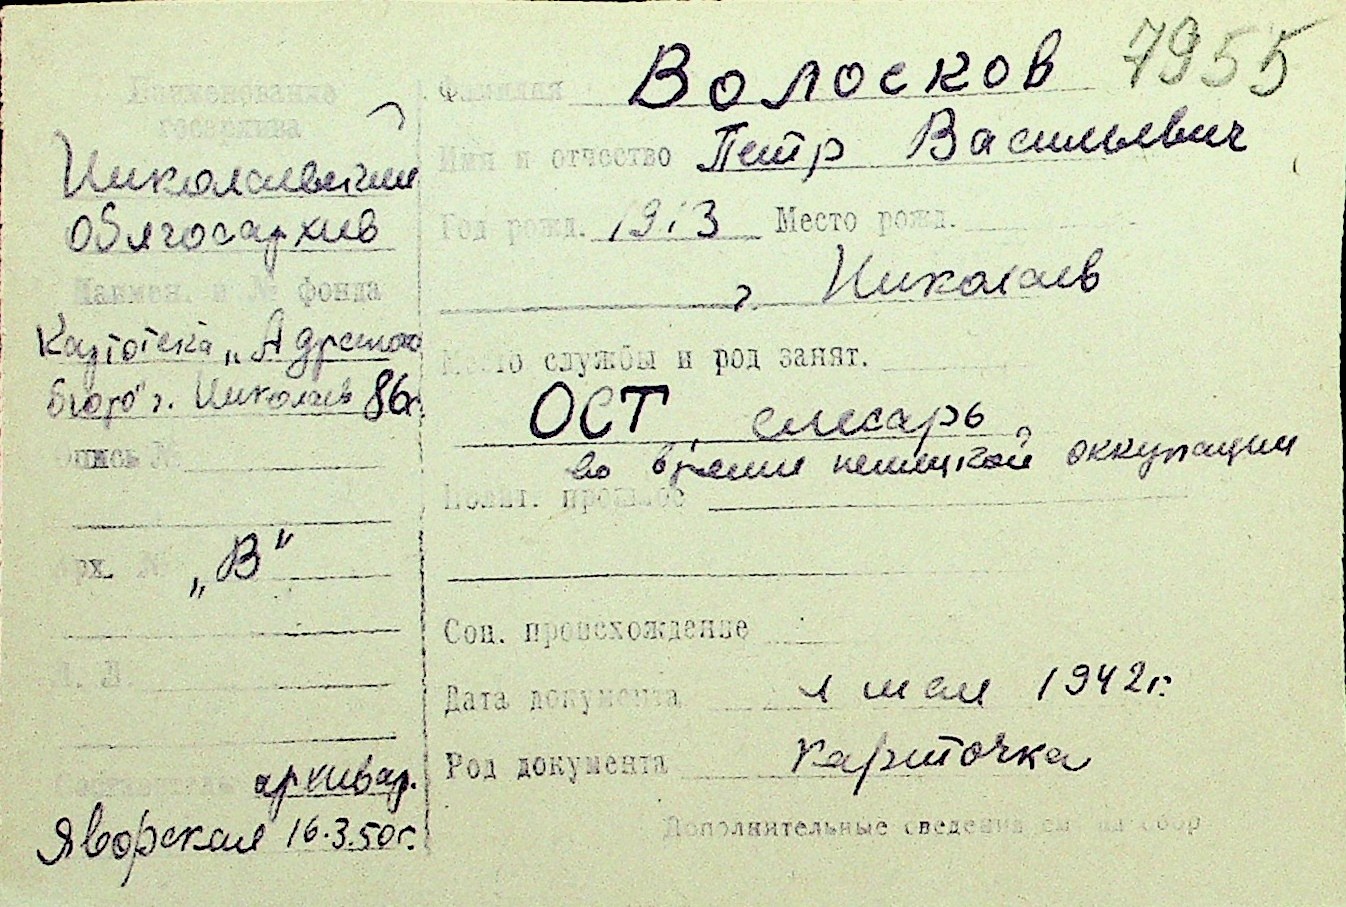 Наименование
госархива
Николаевский
облгосархив
Наимен. и № фонда
Картотека „Адресное
бюро" г. Николаев 86г.
Опись №
Арх. № „В"
Л. Л.
Составитель архивар.
Яворская 16.3.50г.
7955
Фамилия Волосков
Имя и отчество Петр Васильевич
Год рожд. 1913 Место рожд.
г. Николаев
Место службы и род занят.
ОСТ, слесарь
во время немецкой оккупации
Полит. прошлое
Соц. происхождение
Дата документа 1 мая 1942г.
Род документа карточка
Дополнительные сведения см. на обор